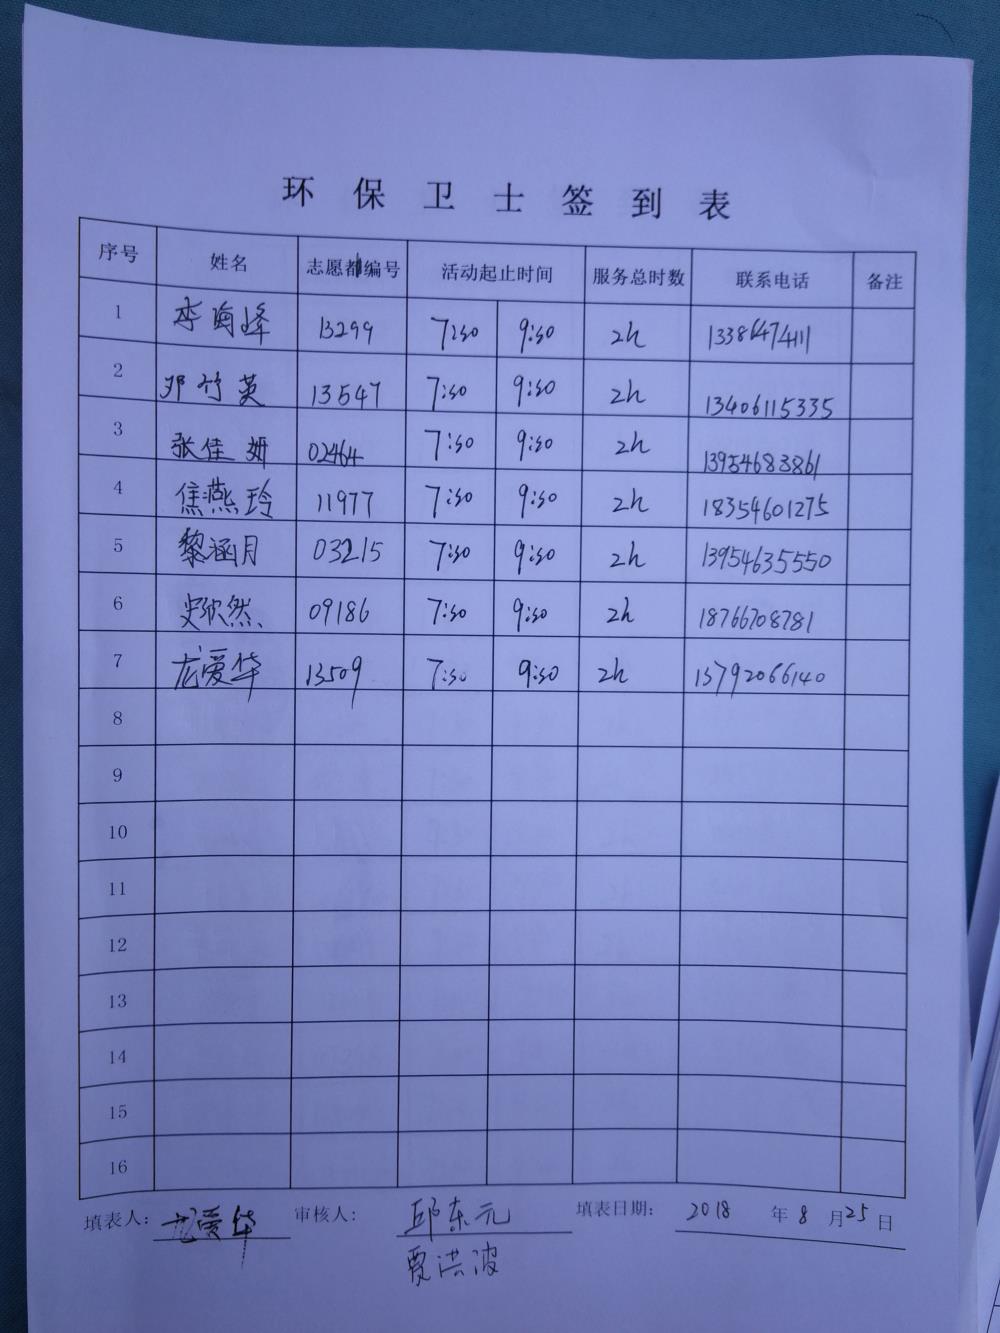 环保卫士签到表
序号 姓名 志愿者编号 活动起止时间 服务总时数 联系电话 备注
1 李海峰 13299 7:30 9:30 2h 13386474111
2 邓竹英 13547 7:30 9:30 2h 13406115335
3 张佳妍 02464 7:30 9:30 2h 13954683861
4 焦燕玲 11977 7:30 9:30 2h 18354601275
5 黎涵月 03215 7:30 9:30 2h 13954635550
6 史欣然 09186 7:30 9:30 2h 18766708781
7 龙爱华 13509 7:30 9:30 2h 13792066140
8
9
10
11
12
13
14
15
16
填表人: 龙爱华 审核人: 邱东元 填表日期: 2018 年 8 月 25 日
贾洪波